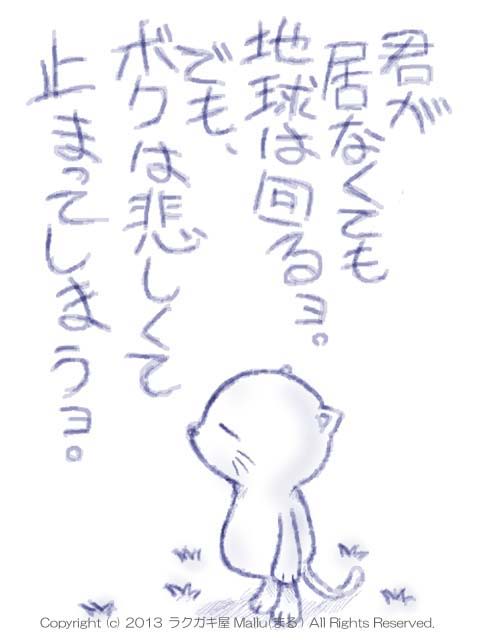 君が
居なくても
地球は回るョ。
でも、
ボクは悲しくて
止まってしまうョ。
Copyright (c) 2013 ラクガキ屋 Mallu(まる) All Rights Reserved.